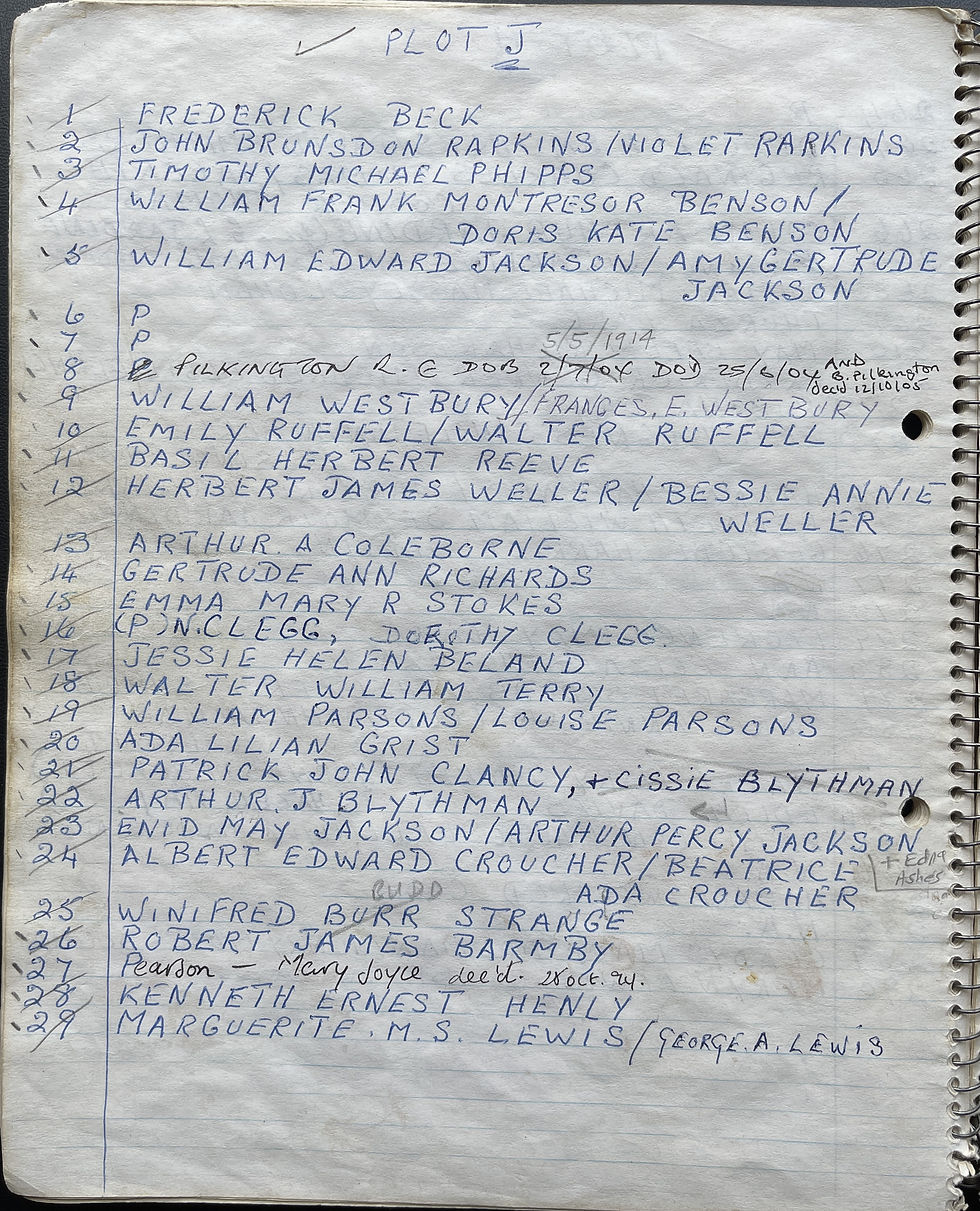 ✓ PLOT J
1 FREDERICK BECK
2 JOHN BRUNSDON RAPKINS/VIOLET RARKINS
3 TIMOTHY MICHAEL PHIPPS
4 WILLIAM FRANK MONTRESOR BENSON/
DORIS KATE BENSON
5 WILLIAM EDWARD JACKSON/AMY GERTRUDE
JACKSON
6 P
7 P
5/5/1914
8 P PILKINGTON R. E DOB 2/7/04 DOD 25/6/04 AND
B. Pilkington
dec'd 12/10/05
9 WILLIAM WESTBURY/FRANCES. E. WESTBURY
10 EMILY RUFFELL/WALTER RUFFELL
11 BASIL HERBERT REEVE
12 HERBERT JAMES WELLER/BESSIE ANNIE
WELLER
13 ARTHUR. A COLEBORNE
14 GERTRUDE ANN RICHARDS
15 EMMA MARY R STOKES
16 (P) N. CLEGG, DOROTHY CLEGG.
17 JESSIE HELEN BELAND
18 WALTER WILLIAM TERRY
19 WILLIAM PARSONS/LOUISE PARSONS
20 ADA LILIAN GRIST
21 PATRICK JOHN CLANCY, + CISSIE BLYTHMAN
22 ARTHUR. J BLYTHMAN
23 ENID MAY JACKSON/ARTHUR PERCY JACKSON
24 ALBERT EDWARD CROUCHER/BEATRICE + Edna
Ashes
ADA CROUCHER
BUDD
25 WINIFRED BURR STRANGE
26 ROBERT JAMES BARMBY
27 Pearson - Mary Joyce dec'd. 28 Oct. 94.
28 KENNETH ERNEST HENLY
29 MARGUERITE. M. S. LEWIS/GEORGE. A. LEWIS